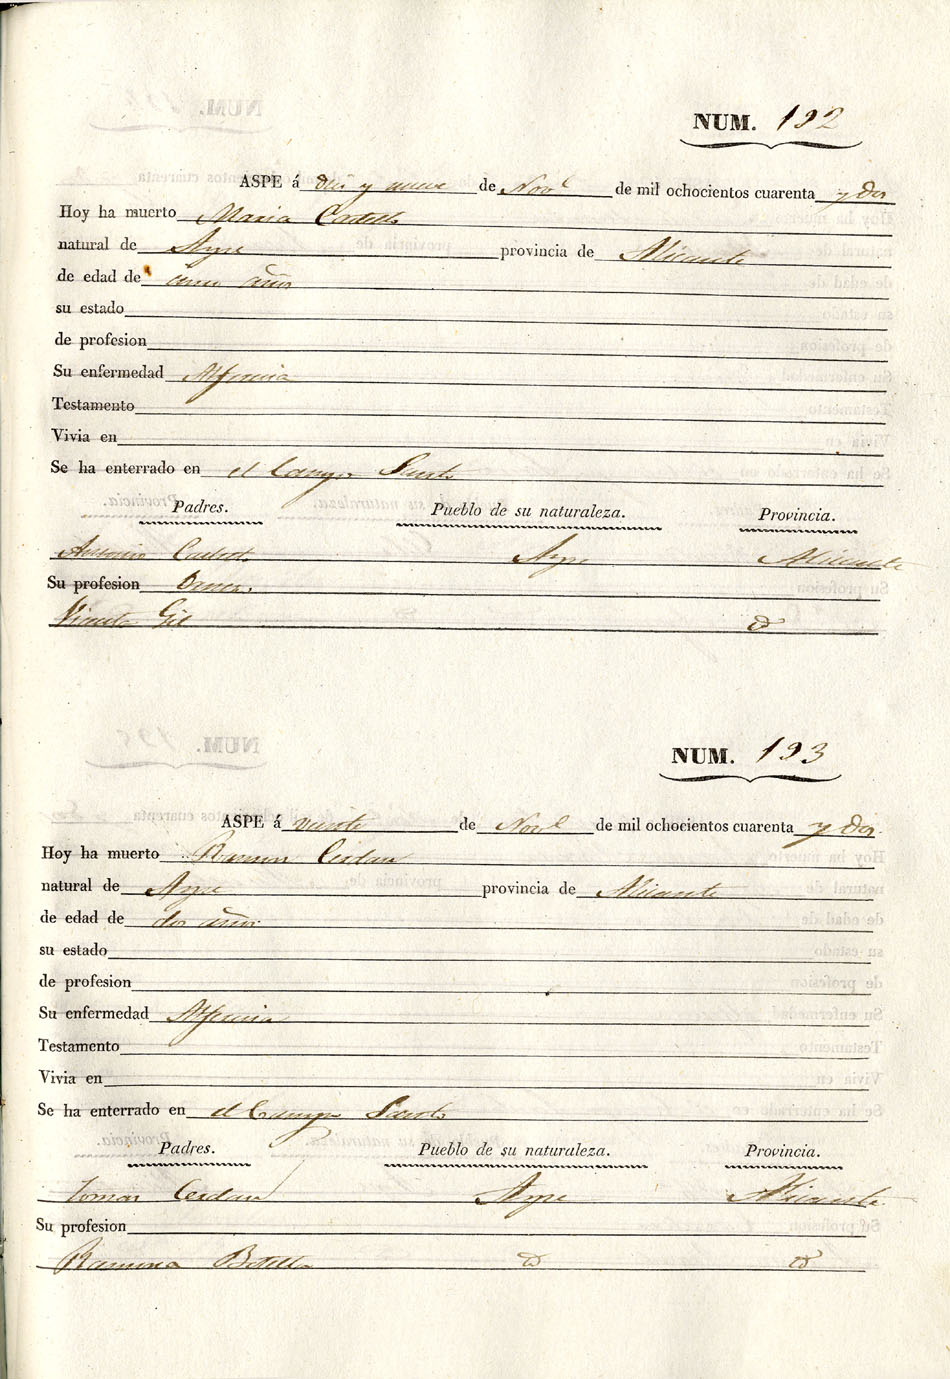 NUM. 192
ASPE á diez y nueve de Nov.e de mil ochocientos cuarenta y dos
Hoy ha muerto Maria
natural de Aspe provincia de Alicante
de edad de años
su estado
de profesion
Su enfermedad Alferecia
Testamento
Vivia en
Se ha enterrado en el Campo Santo
Padres. Pueblo de su naturaleza. Provincia.
Antonio Aspe Alicante
Su profesion
Vicenta Gil d
NUM. 193
ASPE á veinte de Nov.e de mil ochocientos cuarenta y dos.
Hoy ha muerto Ramon Cerdan
natural de Aspe provincia de Alicante
de edad de dos años
su estado
de profesion
Su enfermedad Alferecia
Testamento
Vivia en
Se ha enterrado en el Campo Santo
Padres. Pueblo de su naturaleza. Provincia.
Tomas Cerdan Aspe Alicante
Su profesion
Ramona Botella d d